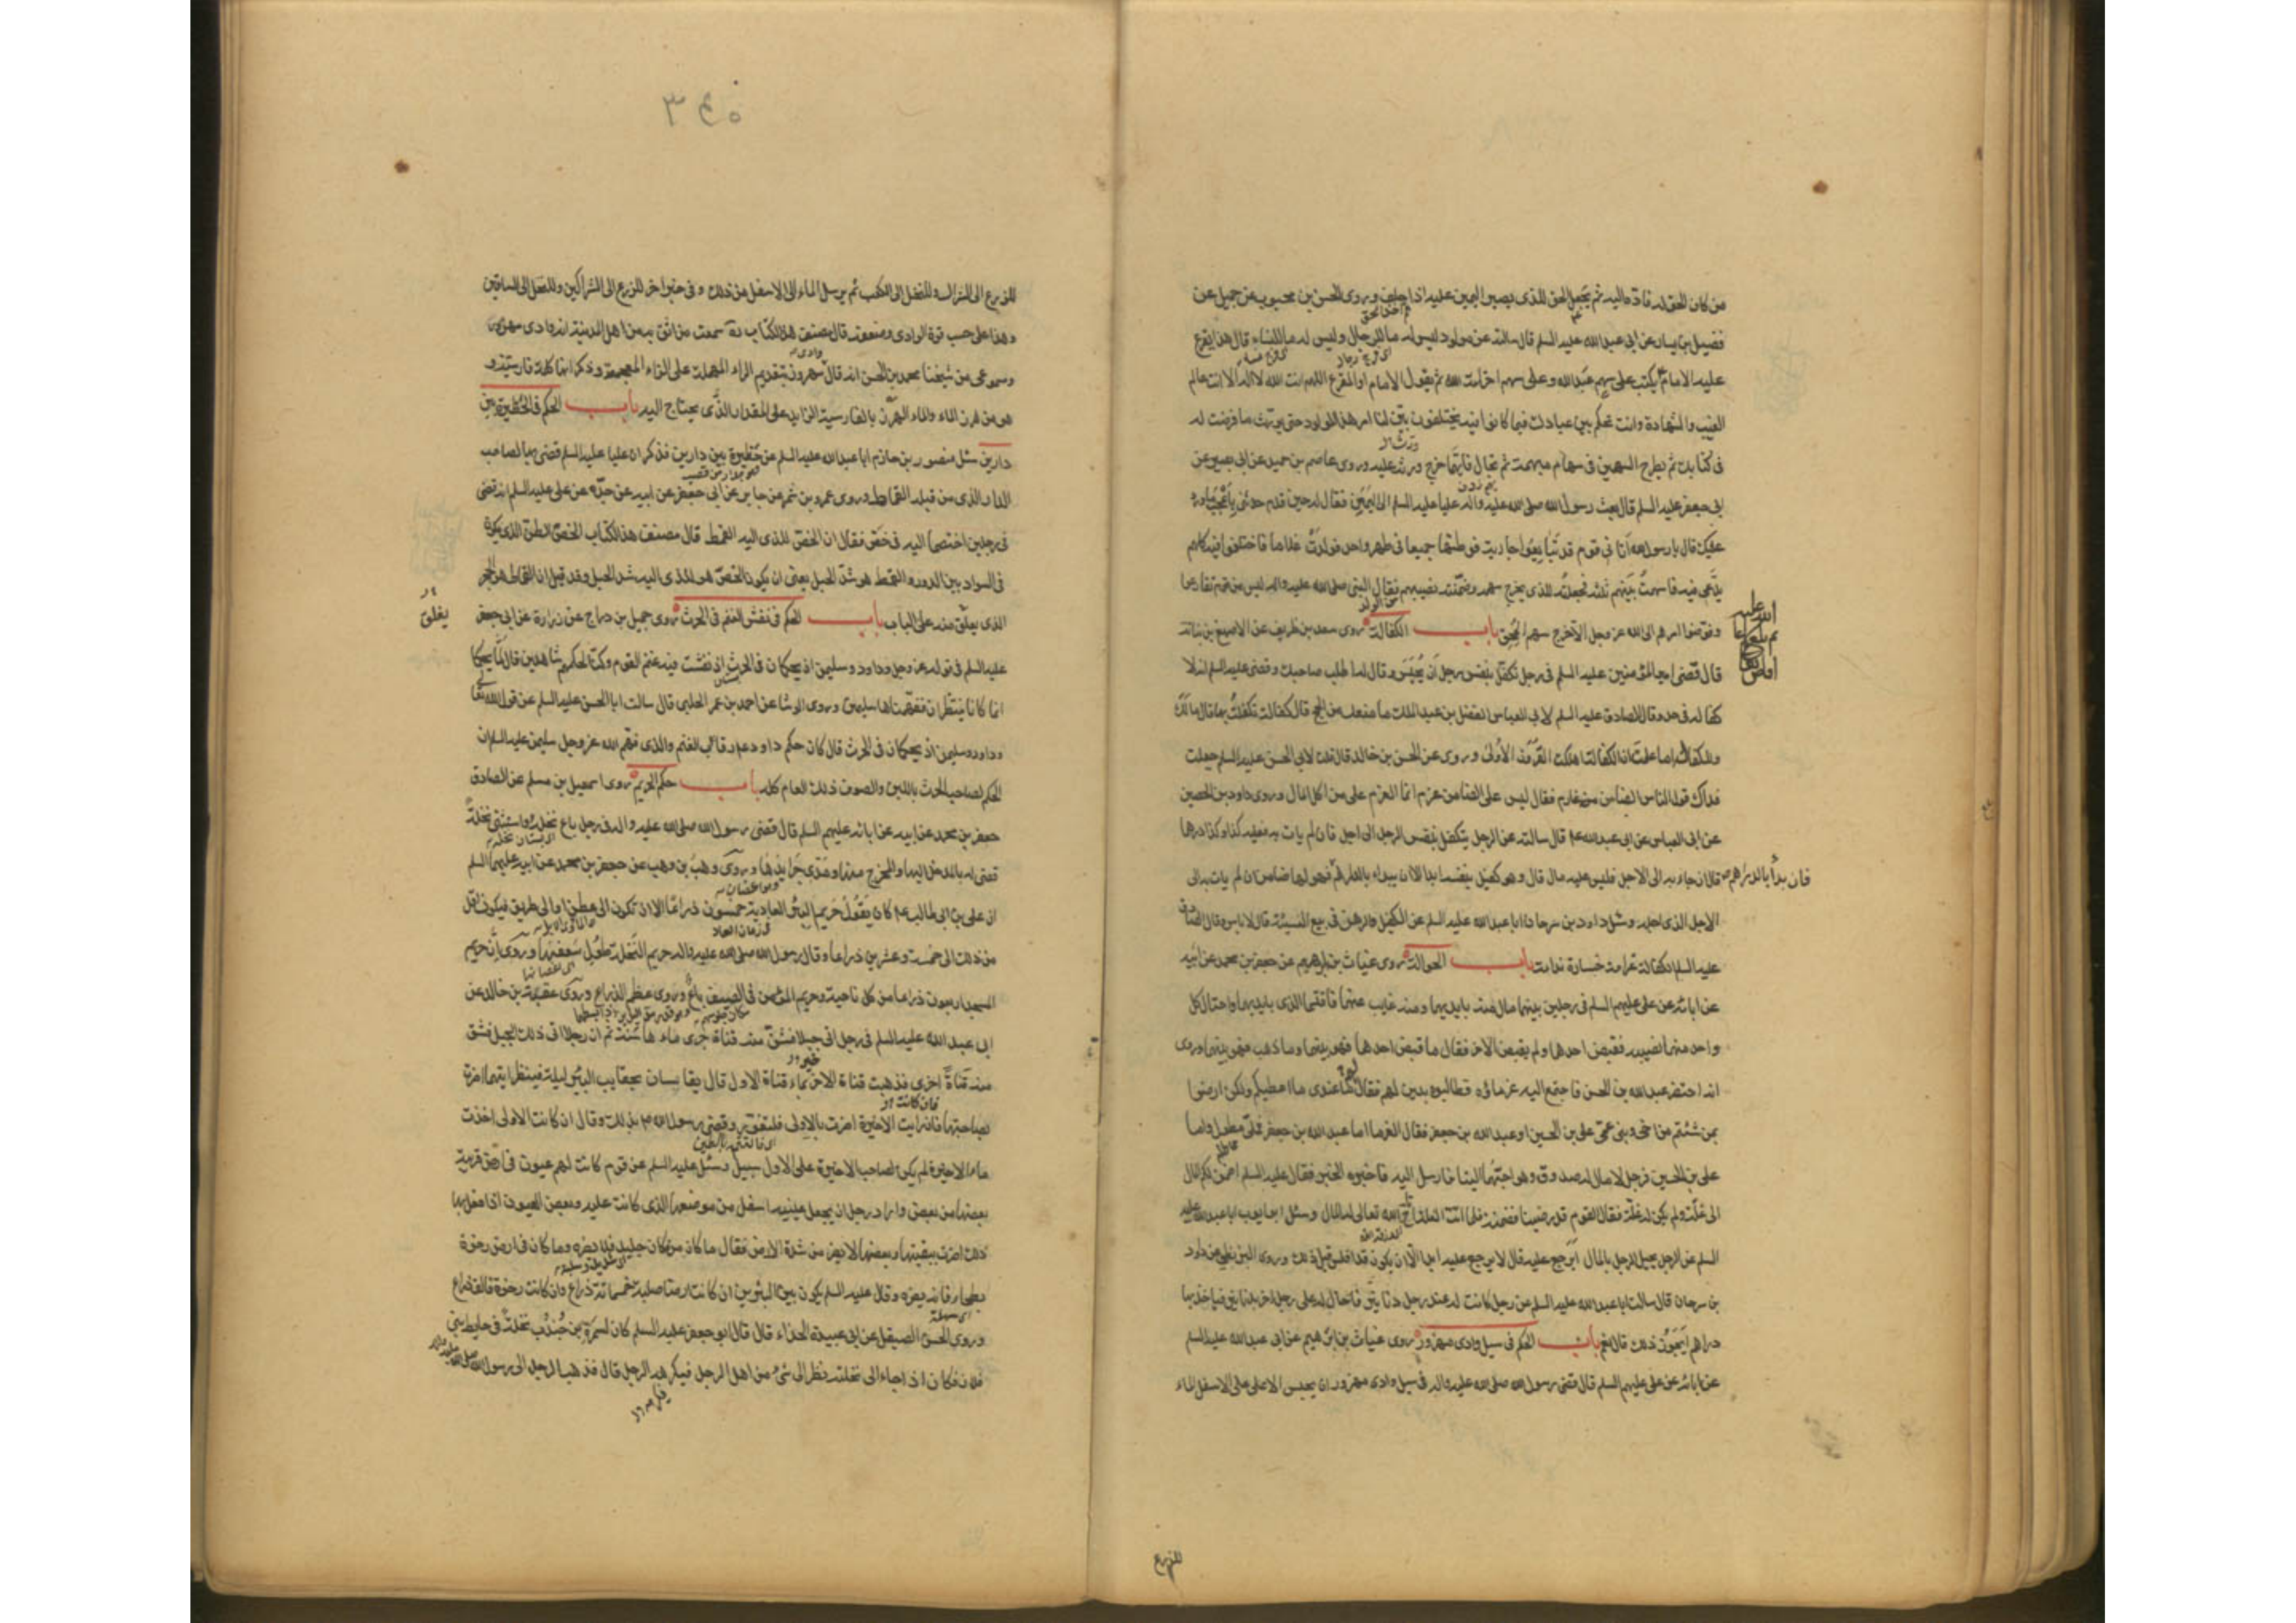 من كان الحق له فاده اليه ثم يجعل الحق للذى يصير اليمين عليه اذا حلف وروى الحسن بن محبوب عن جميل عن
فضيل بن يسار عن ابى عبد الله عليه السلم قال سالته عن مولود ليس له ما للرجال وليس له ما للنساء قال هذا يقرع
عليه الامام يكتب على سهم عبد الله وعلى سهم اخر امة الله ثم يقول الامام او المقرع اللهم انت الله لا اله الا انت عالم
الغيب والشهادة وانت تحكم بين عبادك فيما كانوا فيه يختلفون بيّن لنا امر هذا المولود حتى يورث ما فرضت له
فى كتابك ثم يطرح السهمين فى سهام مبهمة ثم تجال فايهما خرج ورث عليه وروى عاصم بن حميد عن ابى بصير عن
ابى جعفر عليه السلم قال بعث رسول الله صلى الله عليه واله عليا عليه السلم الى اليمن فقال له حين قدم حدثنى باعجب ما ورد
عليك قال يا رسول الله اتانى قوم قد تبايعوا جارية فوطئها جميعا فى طهر واحد فولدت غلاما فاختلفوا فيه كلهم
يدّعى فيه فاسهمت بينهم ثلثة فجعلته للذى يخرج سهمه وضمنته نصيبهم فقال النبى صلى الله عليه واله ليس من قوم تقارعوا
وفوضوا امرهم الى الله عز وجل الا خرج سهم المحق باب الكفالة روى سعد بن طريف عن الاصبغ بن نباته
قال قضى امير المؤمنين عليه السلم فى رجل تكفل بنفس رجل ان يحبس وقال له اطلب صاحبك وقضى عليه السلم انه لا
كفالة فى حد وقال الصادق عليه السلم لابى العباس الفضل بن عبد الملك ما منعك من الحج قال كفالة تكفلت بها قال مالك
والكفالات اما علمت ان الكفالة اهلكت القرون الاولى وروى عن الحسن بن خالد قال قلت لابى الحسن عليه السلم جعلت
فداك قول الناس الضامن غارم فقال ليس على الضامن غرم انما الغرم على من اكل المال وروى داود بن الحصين
عن ابى العباس عن ابى عبد الله ع قال سالته عن الرجل يتكفل بنفس الرجل الى اجل فان لم يات به فعليه كذا وكذا درهما
قال ان جاء به الى الاجل فليس عليه مال قال وهو كفيل بنفسه ابدا الا ان يبداء بالدراهم فهو لها ضامن ان لم يات به الى
فان بدأ بالدراهم
الاجل الذى اجله وسئل داود بن سرحان ابا عبد الله عليه السلم عن الكفيل والرهن فى بيع النسيئة قال لا باس وقال الصادق
عليه السلم الكفالة غرامة خسارة ندامة باب الحوالة روى غياث بن ابرهيم عن جعفر بن محمد عن ابيه
عن ابائه عن على عليهم السلم فى رجلين بينهما مال منه بايديهما ومنه غايب عنهما فاقتسما الذى بايديهما واحتال كل
واحد منهما نصيبه فقبض احدهما ولم يقبض الاخر فقال ما قبض احدهما فهو بينهما وما ذهب فهو بينهما وروى
انه احتضر عبد الله بن الحسن فاجتمع اليه غرماؤه فطالبوه بدين لهم فقال ما عندى ما اعطيكم ولكن ارضوا
بمن شئتم من اخى وبنى عمى على بن الحسين او عبد الله بن جعفر فقال الغرما اما عبد الله بن جعفر فملى مطول واما
على بن الحسين فرجل لا مال له صدوق وهو احبهما الينا فارسل اليه فاخبره الخبر فقال عليه السلم اضمن لكم المال
الى غلة ولم يكن له غلة فقال القوم قد رضينا فضمنه فلما اتت الغلة اتاح الله تعالى له المال وسئل ابو ايوب ابا عبد الله عليه
السلم عن الرجل يحيل الرجل بالمال ايرجع عليه قال لا يرجع عليه ابدا الا ان يكون قد افلس قبل ذلك وروى البزنطى عن داود
بن سرحان قال سالت ابا عبد الله عليه السلم عن رجل كانت له عند رجل دنانير فاحال له على رجل اخر بدنانير فياخذ بها
دراهم ايجوز ذلك قال نعم باب الحكم فى سيل وادى مهزور روى غياث بن ابرهيم عن ابى عبد الله عليه السلم
عن ابائه عن على عليهم السلم قال قضى رسول الله صلى الله عليه واله فى سيل وادى مهزور ان يحبس الاعلى على الاسفل الماء
للزرع
٣٤٥
للزرع الى الشراك وللنخل الى الكعب ثم يرسل الماء الى الاسفل من ذلك وفى خبر اخر للزرع الى الشراكين وللنخل الى الساقين
وهذا على حسب قوة الوادى وضعفه قال مصنف هذا الكتاب ره سمعت من اثق به من اهل المدينة انه وادى مهزور
ومسموعى من شيخنا محمد بن الحسن انه قال مهروز بتقديم الراء المهملة على الزاء المعجمة وذكر انها كلمة فارسية و
هو من هرز الماء والماء الهرز بالفارسية الزايد على المقدار الذى يحتاج اليه باب الحكم فى الحظيرة بين
دارين سئل منصور بن حازم ابا عبد الله عليه السلم عن حظيرة بين دارين فذكر ان عليا عليه السلم قضى بها لصاحب
الدار الذى من قبله القماط وروى عمرو بن شمر عن جابر عن ابى جعفر عن ابيه عن جده عن على عليه السلم انه قضى
فى رجلين اختصما اليه فى خص فقال ان الخص للذى اليه القمط قال مصنف هذا الكتاب الخص الطن الذى يكون
فى السواد بين الدور والقمط هو شد الحبل يعنى ان يكون الخص هو للذى اليه شد الحبل وقد قيل ان القماط هو الحجر
الذى يعلق منه على الباب باب الحكم فى نفش الغنم فى الحرث روى جميل بن دراج عن زرارة عن ابى جعفر
يغلق
عليه السلم فى قوله عز وجل وداود وسليمن اذ يحكمان فى الحرث اذ نفشت فيه غنم القوم وكنا لحكمهم شاهدين قال لم يحكما
انما كانا يتناظران ففهمناها سليمن وروى الوشا عن احمد بن عمر الحلبى قال سالت ابا الحسن عليه السلم عن قول الله تعالى
وداود وسليمن اذ يحكمان فى الحرث قال كان حكم داود ع رقاب الغنم والذى فهم الله عز وجل سليمن عليه السلم ان
الحكم لصاحب الحرث باللبن والصوف ذلك العام كله باب حكم الحريم روى اسمعيل بن مسلم عن الصادق
جعفر بن محمد عن ابيه عن ابائه عليهم السلم قال قضى رسول الله صلى الله عليه واله فى رجل باع نخله واستثنى نخلة
قضى له بالمدخل اليها والمخرج منها ومدى جرايدها وروى وهب بن وهب عن جعفر بن محمد عن ابيه عليهما السلم
ان على بن ابى طالب ع كان يقول حريم البئر العادية خمسون ذراعا الا ان تكون الى عطن او الى طريق فيكون اقل
من ذلك الى خمسة وعشرين ذراعا وقال رسول الله صلى الله عليه واله حريم النخلة طول سعفتها وروى ان حريم
المسجد اربعون ذراعا من كل ناحية وحريم المؤمن فى الصيف باع وروى عظم الذراع وروى عقبة بن خالد عن
ابى عبد الله عليه السلم فى رجل اتى جبلا فشق منه قناة جرى ماءها سنة ثم ان رجلا اتى ذلك الجبل فشق
منه قناة اخرى فذهبت قناة الاخر بماء قناة الاول قال يقايسان بحقايب البئر ليلة ليلة فينظر ايتهما اضرت
بصاحبتها فان رايت الاخيرة اضرت بالاولى فلتغور وقضى رسول الله ص بذلك وقال ان كانت الاولى اخذت
ماء الاخيرة لم يكن لصاحب الاخيرة على الاول سبيل وسئل عليه السلم عن قوم كانت لهم عيون فى ارض قريبة
بعضها من بعض واراد رجل ان يجعل عينه اسفل من موضعها الذى كانت عليه وبعض العيون اذا فعل بها
ذلك اضرت ببقيتها وبعضها لا يضر من شدة الارض فقال ما كان من مكان جليد فلا يضره وما كان فى ارض رخوة
بطحاء فانه يضره وقال عليه السلم يكون بين البئرين ان كانت ارضا صلبة خمسمائة ذراع وان كانت رخوة فالف ذراع
وروى الحسن الصيقل عن ابى عبيدة الحذاء قال قال ابو جعفر عليه السلم كان لسمرة بن جندب نخلة فى حايط بنى
فلان فكان اذا جاء الى نخلته نظر الى شئ من اهل الرجل فيكرهه الرجل قال فذهب الرجل الى رسول الله صلى الله عليه واله